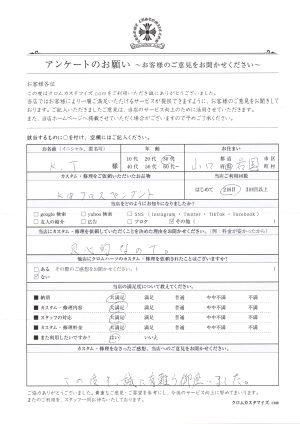 アンケートのお願い ～お客様のご意見をお聞かせください～
お客様各位
この度はクロムカスタマイズ.comをご利用いただき誠にありがとうございます。
当店ではお客様により一層ご満足いただけるサービスが提供できますように、お客様のご意見をお聞きしております。
ご記入いただきましたご意見は、当店のサービス向上のために活用させていただきます。
また、当店ホームページへ掲載させていただく場合がございますので予めご了承ください。
該当するものに○を付け、空欄にはご記入ください。
お名前（イニシャル、匿名可） 年齢 お住まい
K.T 様 10代 20代 30代 40代 50代 60代～ 山口 都道府県 岩国 市区町村
カスタム・修理をご依頼いただいたお品物 当店ご利用回数
はじめて 2回目 3回目以上
当店をどのようにお知りになりましたか？
google検索 yahoo検索 SNS（Instagram・Twitter・TikTok・Facebook）
友人の紹介 広告 ブログ その他（ ）
当店にカスタム・修理を依頼していただくことを決めた理由をお聞かせください。（例：料金が安かったから）
良心的なので。
他店にクロムハーツのカスタム・修理を依頼されたことはございますか？
ある その際のご感想をお聞かせください。
ない
当店の満足度について教えてください。
■ 納期 大満足 満足 普通 やや不満 不満
■ カスタム・修理内容 大満足 満足 普通 やや不満 不満
■ スタッフの対応 大満足 満足 普通 やや不満 不満
■ カスタム・修理料金 大満足 満足 普通 やや不満 不満
■ また利用したいですか？ はい いいえ
カスタム・修理をなさったご感想、当店へのご意見をお聞かせください。
この度は、誠に有難う御座いました。
ご協力ありがとうございました。貴重なご意見・ご要望を参考にし、今後のサービス向上に努めてまいります。
またのご利用を、スタッフ一同お待ちしております。
クロムカスタマイズ.com